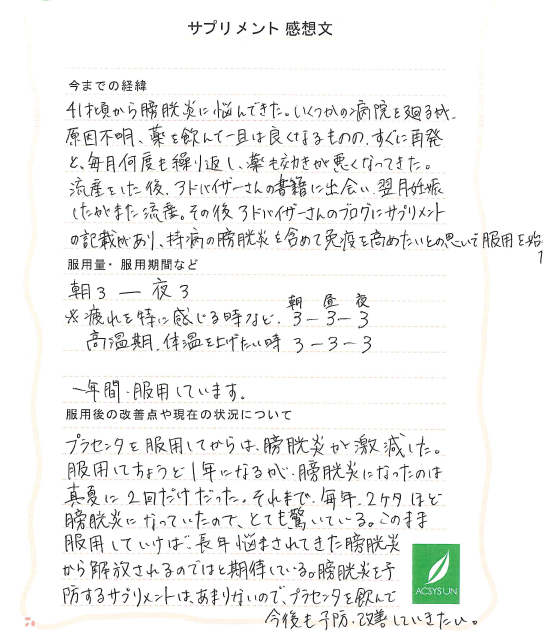 サプリメント 感想文
今までの経緯
41才頃から膀胱炎に悩んできた。いくつかの病院を廻るが、
原因不明、薬を飲んで一旦は良くなるものの、すぐに再発
と、毎月何度も繰り返し、薬も効きが悪くなってきた。
流産をした後、アドバイザーさんの書籍に出会い、翌月妊娠
したがまた流産。その後アドバイザーさんのブログにサプリメント
の記載があり、持病の膀胱炎を含めて免疫を高めたいとの思いで服用を始
服用量・服用期間など
朝3 ― 夜3
朝 昼 夜
※疲れを特に感じる時など、3－3－3
高温期、体温を上げたい時 3－3－3
一年間、服用しています。
服用後の改善点や現在の状況について
プラセンタを服用してからは、膀胱炎が激減した。
服用してちょうど1年になるが、膀胱炎になったのは
真夏に2回だけだった。それまで、毎年、2ケ月ほど
膀胱炎になっていたので、とても驚いている。このまま
服用していけば、長年悩まされてきた膀胱炎
から解放されるのではと期待している。膀胱炎を予
防するサプリメントは、あまりないので、プラセンタを飲んで
今後も予防・改善していきたい。
ACSYSUN